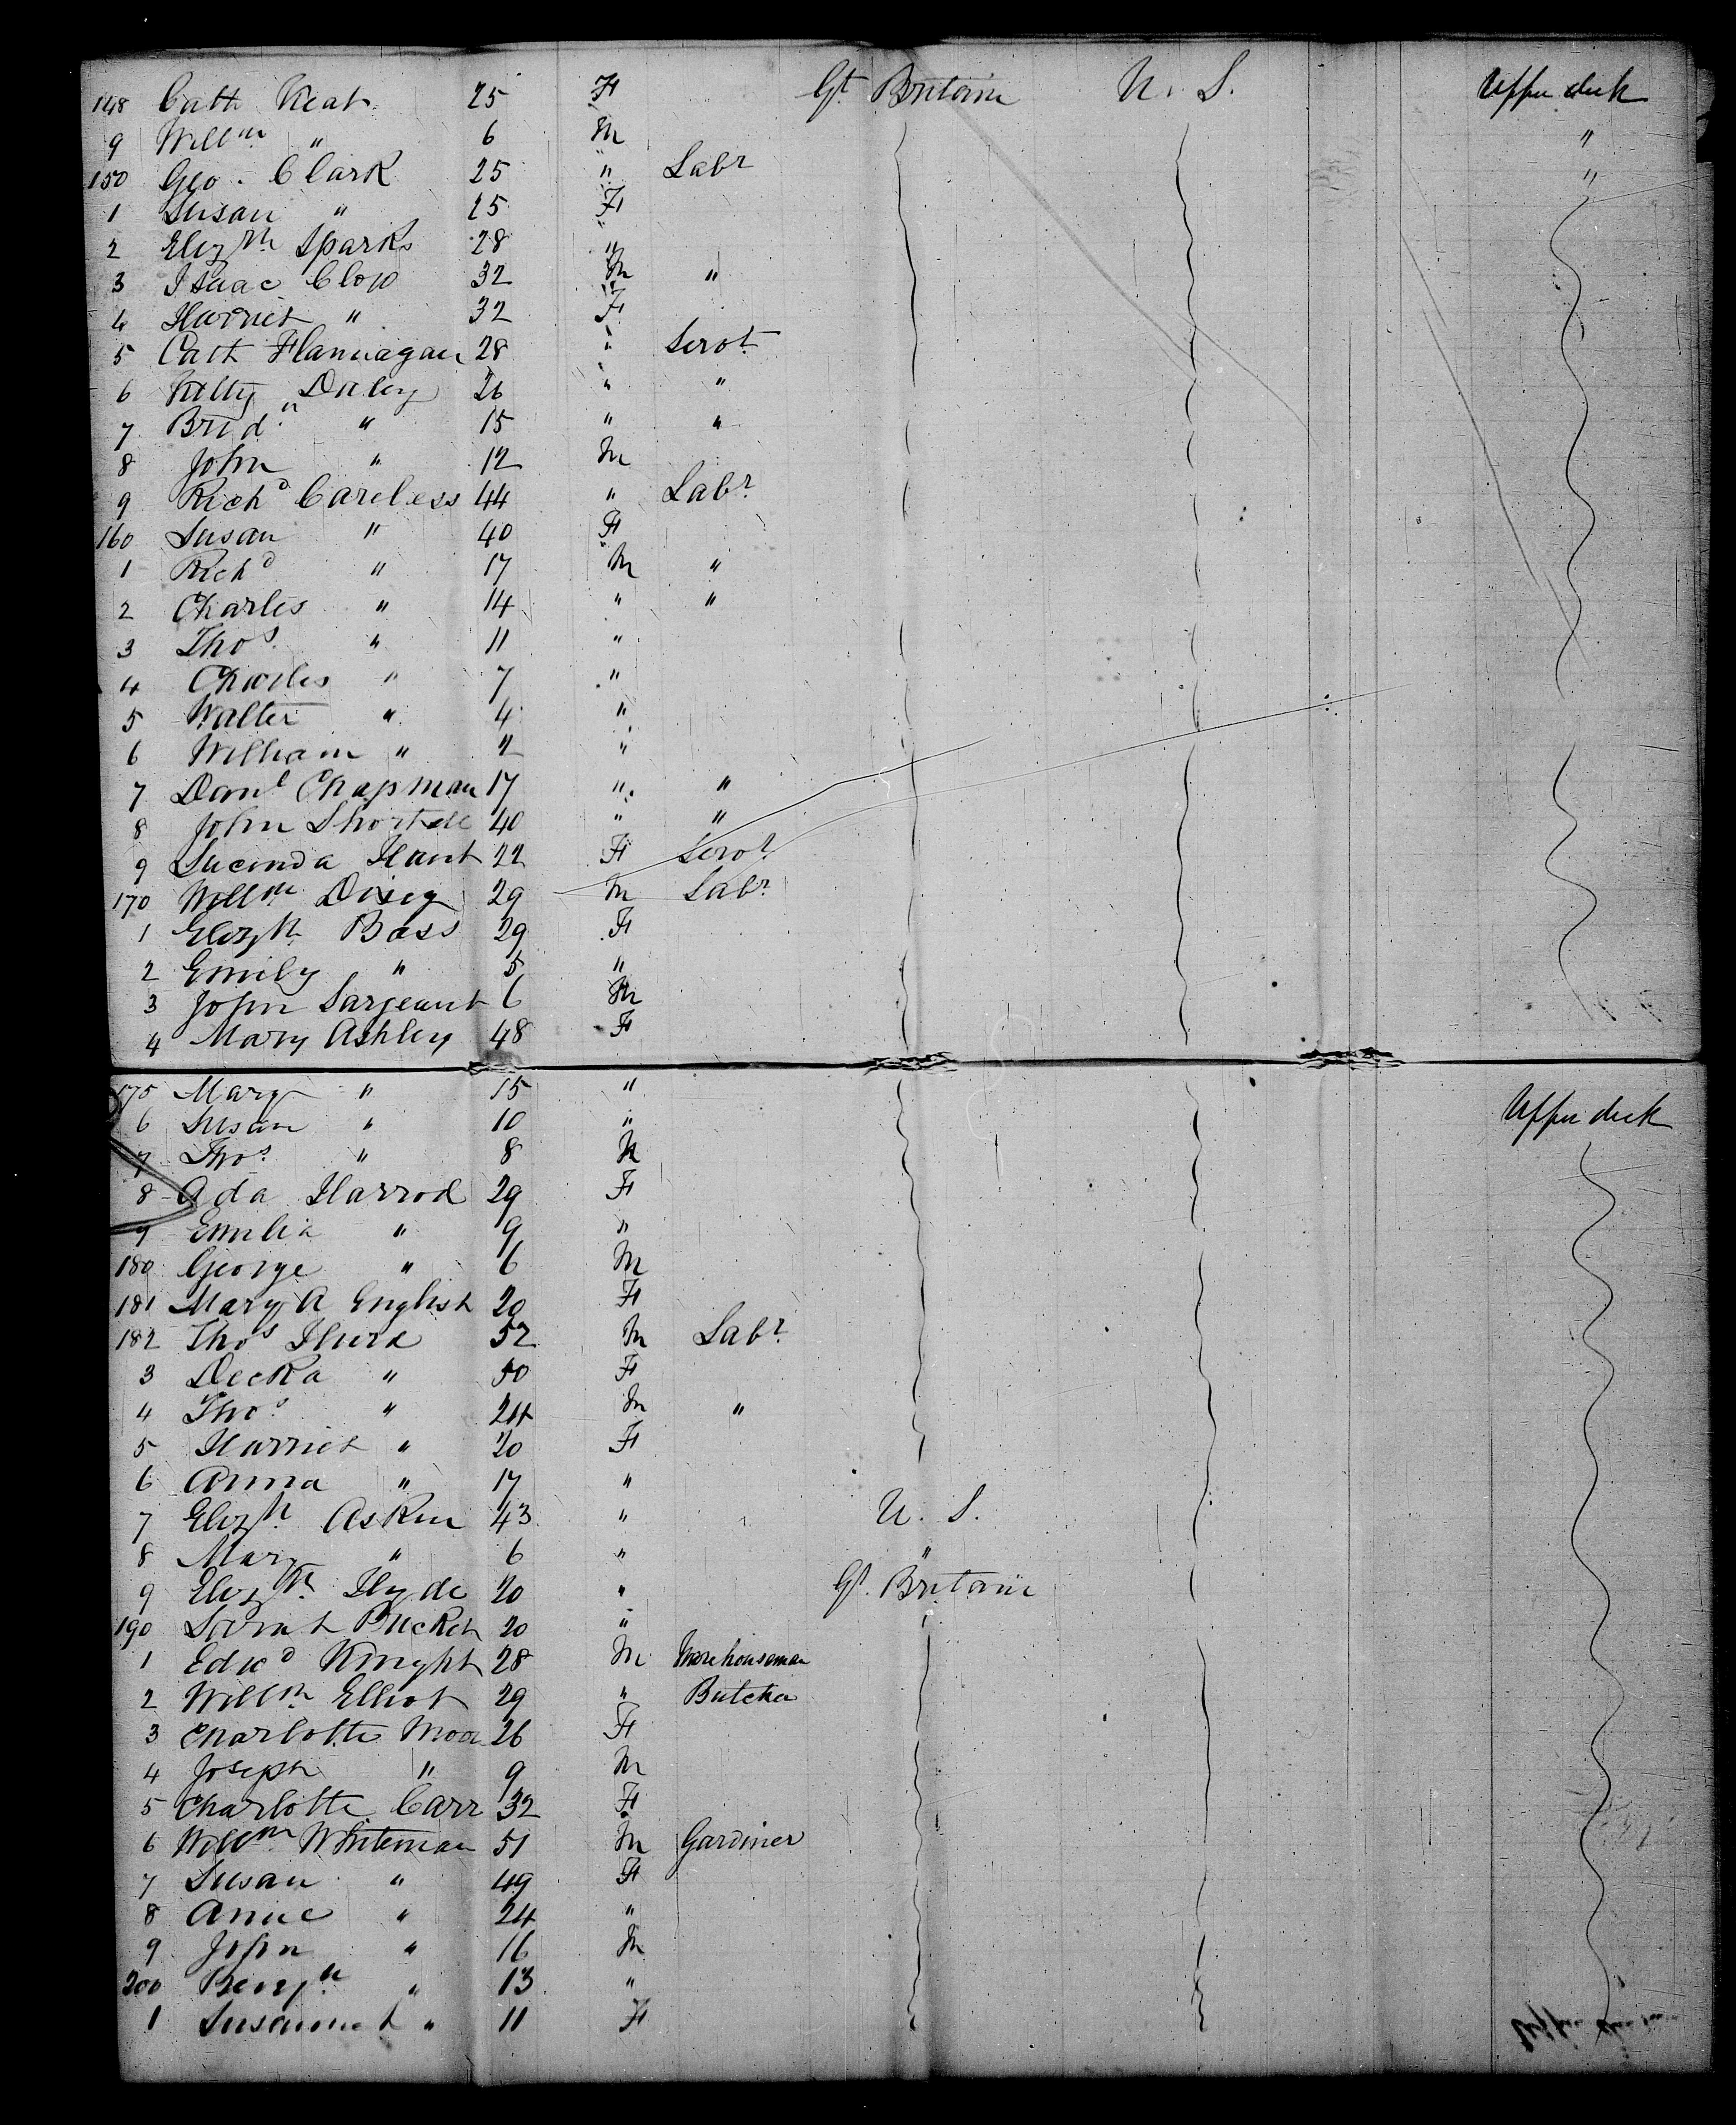 148 Cath Keat 25 F Gt Britain U. S. Upper deck
9 Willm " 6 M "
150 Geo. Clark 25 " Labr "
1 Susan " 25 F
2 Elizth Sparks 28 "
3 Isaac Clow 32 M "
4 Harriet " 32 F
5 Cath Flannagan 28 " Servt
6 Kitty Daley 26 " "
7 Brid " 15 " "
8 John " 12 M
9 Richd Careless 44 " Labr
160 Susan " 40 F
1 Richd " 17 M "
2 Charles " 14 " "
3 Thos " 11 "
4 Charles " 7 "
5 Walter " 4 "
6 William " 2 "
7 Danl Chapman 17 " "
8 John 40 " "
9 Lucinda Hant 22 F Servt
170 Willm 29 M Labr
1 Elizth Bass 29 F
2 Emily " 5 "
3 John Sargeant 6 M
4 Mary Ashley 48 F
175 Mary " 15 " Upper deck
6 Susan " 10 "
7 Thos " 8 M
8 Ada Harrod 29 F
9 Emilia " 9 "
180 George " 6 M
181 Mary A English 20 F
182 Thos Hurd 52 M Labr
3 Decka " 50 F
4 Thos " 24 M "
5 Harriet " 20 F
6 Anna " 17 "
7 Elizth Askin 43 " U. S.
8 Mary " 6 " "
9 Elizth Hyde 20 " Gt. Britain
190 Sarah Bucket 20 "
1 Edwd Knight 28 M Warehouseman
2 Willm Elliot 29 " Butcher
3 Charlotte Moor 26 F
4 Joseph " 9 M
5 Charlotte Carr 32 F
6 Willm Whiteman 51 M Gardiner
7 Susan " 49 F
8 Annie " 24 "
9 John " 16 M
200 Benjn " 13 "
1 Susannah " 11 F